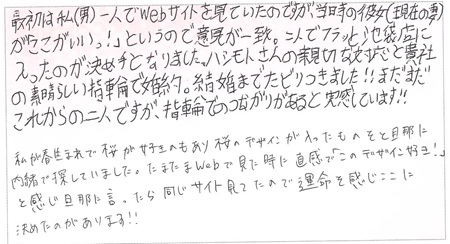 最初は私(男)一人でWebサイトを見ていたのですが、当時の彼女(現在の妻)
が「ここがいいっ!」というので意見が一致。二人でフラッといけ袋店に
入ったのが決め手となりました。ハシモトさんの親切な対応と貴社
の素晴らしい指輪で婚約。結婚までたどりつきました!!まだまだ
これからの二人ですが、指輪でのつながりがあると実感しています!!
私が春生まれで桜が好きのもあり桜のデザインが入ったものをと旦那に
内緒で探していました。たまたまWebで見た時に直感で「このデザイン好き!」
と感じ旦那に言ったら同じサイト見てたので運命を感じここに
決めたのがあります!!